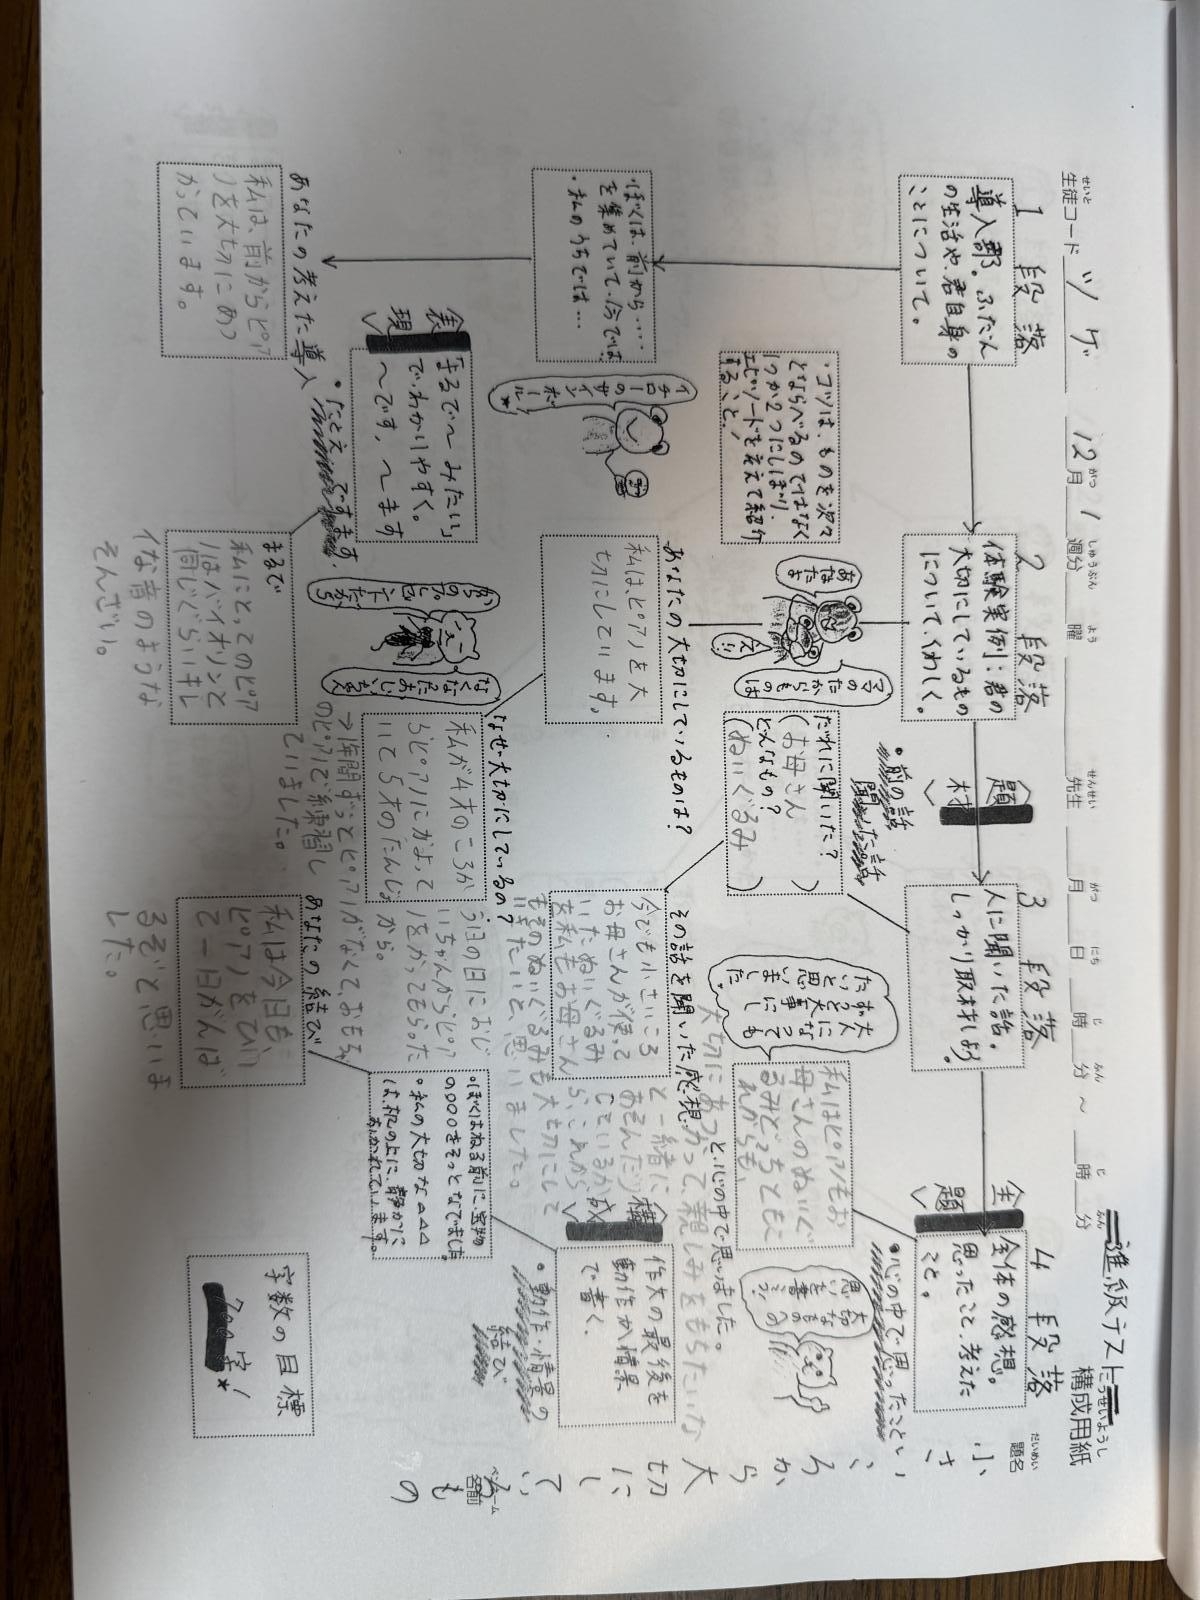 進級テスト
構成用紙
生徒コード ツゲ 12月1週分 曜 先生 月 日 時 分 ~ 時 分
せいと がつ しゅうぶん よう せんせい がつ にち じ ふん じ ふん こうせいようし
1段落
導入部。ふだん
の生活や、君自身の
ことについて。
・ぼくは、前から…
を集めていて、今では
・私のうちでは…
あなたの考えた導入
私は、前からピア
ノを大切にあつ
かっています。
2段落
体験実例:君の
大切にしているもの
について、くわしく。
・コツは、ものを次々
とならべるのではなく
1つか2つにしぼり、
エピソードを交えて紹介
すること!
あなたよ
ママのたからものは
イチローの
サイン
ボール★
あなたの大切にしているものは?
私は、ピアノを大
切にしています。
なぜ大切にしているの?
私が4才のころか
らピアノにかよって
いて5才のたんじょ
う日の日におじ
いちゃんからピア
ノをかってもらった
から。
→1年間ずっとピアノがなくて、おもちゃ
のピアノで練習し
ていました。
なくなったおじいちゃん
からの
プレゼ
ントだ
から
表現
「まるで〜みたい」
で、わかりやすく。
〜です,〜ます
・たとえ
ですます
まるで
私にとってのピア
ノはバイオリンと
同じぐらいキレ
イな音のような
そんざい。
題材
3段落
人に聞いた話。
しっかり取材しよう。
・前の話
聞いた話
だれに聞いた?
(お母さん)
どんなもの?
(ぬいぐるみ)
その話を聞いた感想
今でも小さいころ
お母さんが使って
いたぬいぐるみ
を私もお母さん
と一緒に
あそんだり
しているから、これから
もそのぬいぐるみも大切にして
いきたいと、思いました。
大人に
なっても
ずっと大事にし
たいと思いまし
た。
主題
4段落
全体の感想。
思ったこと、考えた
こと。
・心の中で思ったこと
私はピアノもお
母さんのぬいぐ
るみどちらともこ
れからも、
大切にあつかって、親しみをもちたいな
と、心の中で思いました。
大切な
ものへの
思いを書こう
構成
作文の最後を
動作か情景
で書く。
・動作・情景の
結び
・ぼくはねる前に、宝物
の○○○をそっとなでました。
・私の大切な△△△
は、机の上に静かに
おかれています。
あなたの結び
私は今日も、
ピアノをひい
て一日がんば
るぞと思いま
した。
字数の目標
700字!★
題名
だいめい
小さいころから大切にしているもの
ペンネーム
名前